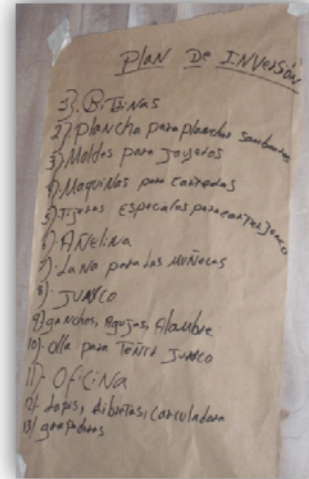 Plan De Inversión
1). Bitrinas
2) plancha para planchar sombreros
3) Moldes para Joyeros
4) Maquinas para carteras
5) Tijeras especiales para cortar Junco
6) Anelina
7). Lana para las Muñecas
8). Junco
9) ganchos, Agujas, Alambre
10). Olla para Teñir Junco
11). Oficina
12). Lapis, libretas, carculadora
13) grapadoras